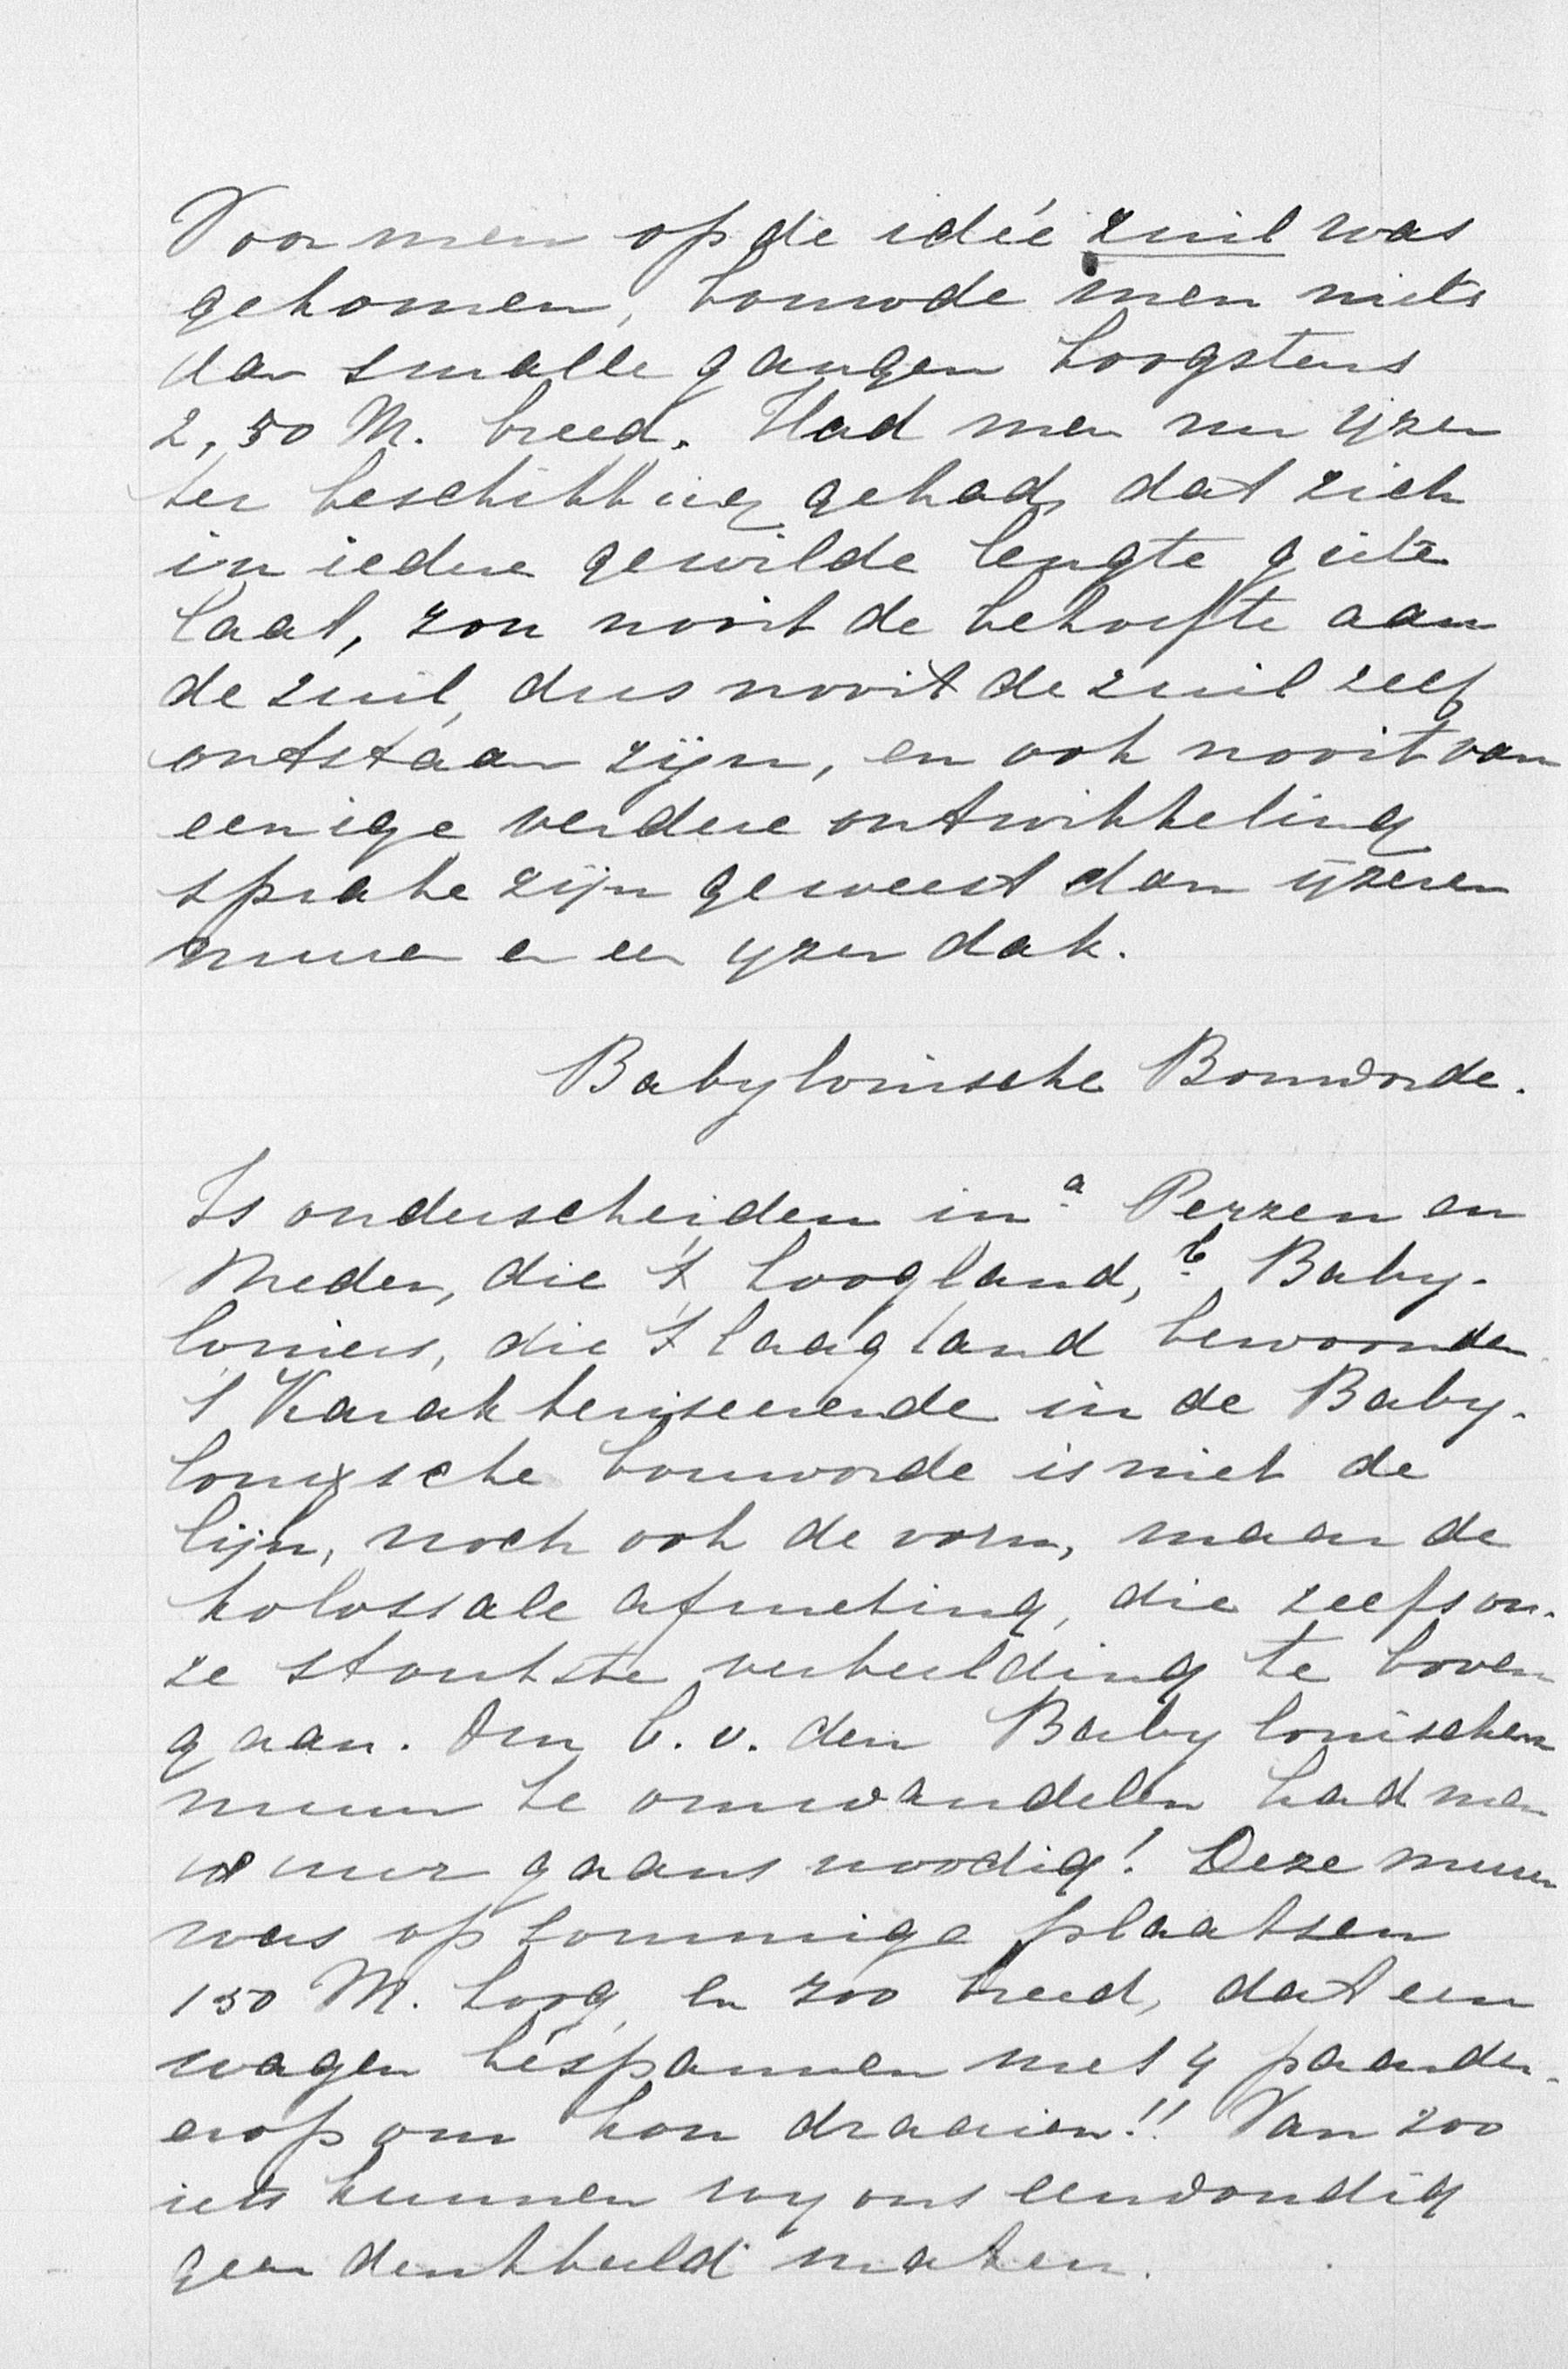 Voor men op de idée zuil was
gekomen, bouwde men niets
dan smalle gangen hoogstens
2,50 M. breed. Had men nu yzer
ter beschikking gehad, dat zich
in iedere gewilde lengte gieten
laat, zou nooit de behoefte aan
de zuil, dus nooit de zuil zelf
ontstaan zijn, en ook nooit van
eenige verdere ontwikkeling
sprake zijn geweest dan ijzeren
muren en een yzer dak.
Babylonische Bouworde.
Is onderscheiden in a Perzen en
Meden, die 't hoogland, b Baby-
loniers, die 't laagland bewoonden.
't Karakteriseerende in de Baby-
lonische bouworde is niet de
lijn, noch ook de vorm, maar de
kolossale afmeting, die zelfs on-
ze stoutste verbeelding te boven
gaan. Om b.v. den Babylonischen
muur te omwandelen had men
uur gaans noodig! Deze muur
was op sommige plaatsen
150 M. hoog, en zoo breed, dat een
wagen bespannen met 4 paarden
erop om kon draaien!! Van zoo
iets kunnen wy ons eenvoudig
geen denkbeeld maken.